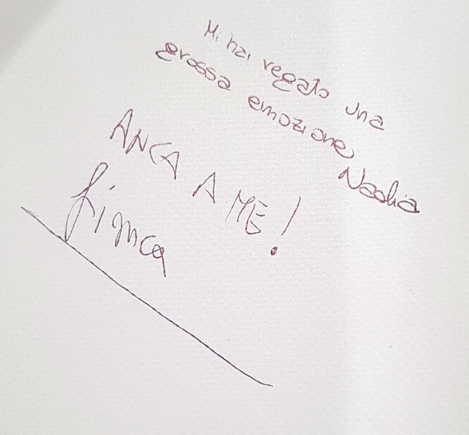 Mi hai regalo una
grossa emozione
Nadia
ANCA A ME!